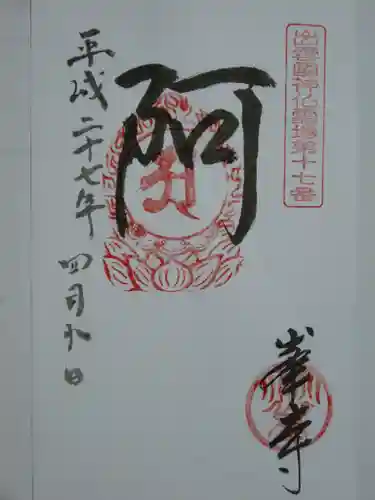 出雲國神仏霊場第十七番
阿
平成二十七年四月九日
峯寺